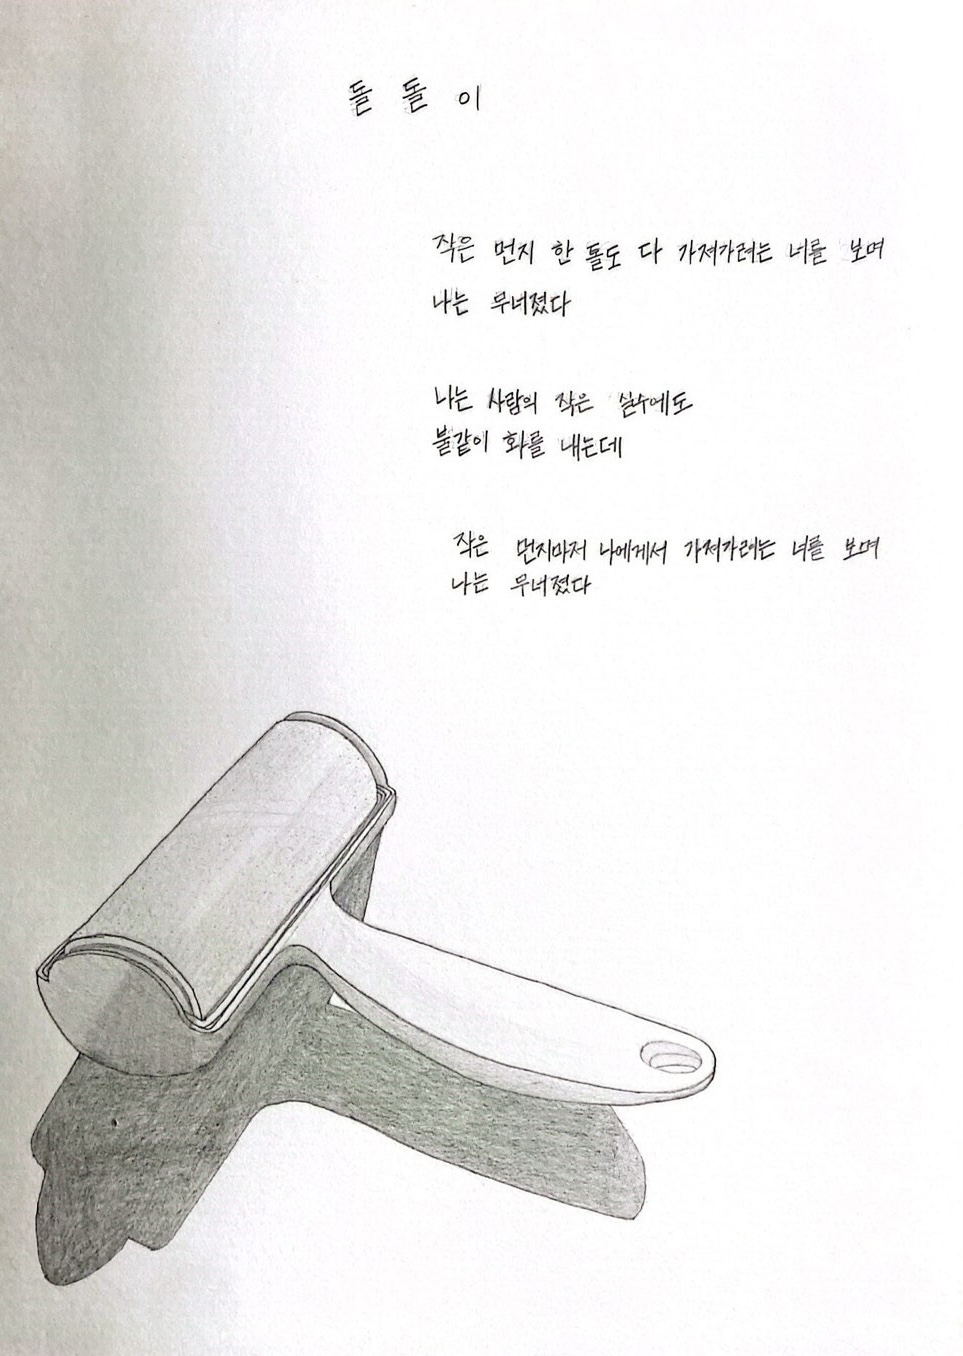 돌 돌 이
작은 먼지 한 톨도 다 가져가려는 너를 보며
나는 무너졌다
나는 사람의 작은 실수에도
불같이 화를 내는데
작은 먼지마저 나에게서 가져가려는 너를 보며
나는 무너졌다